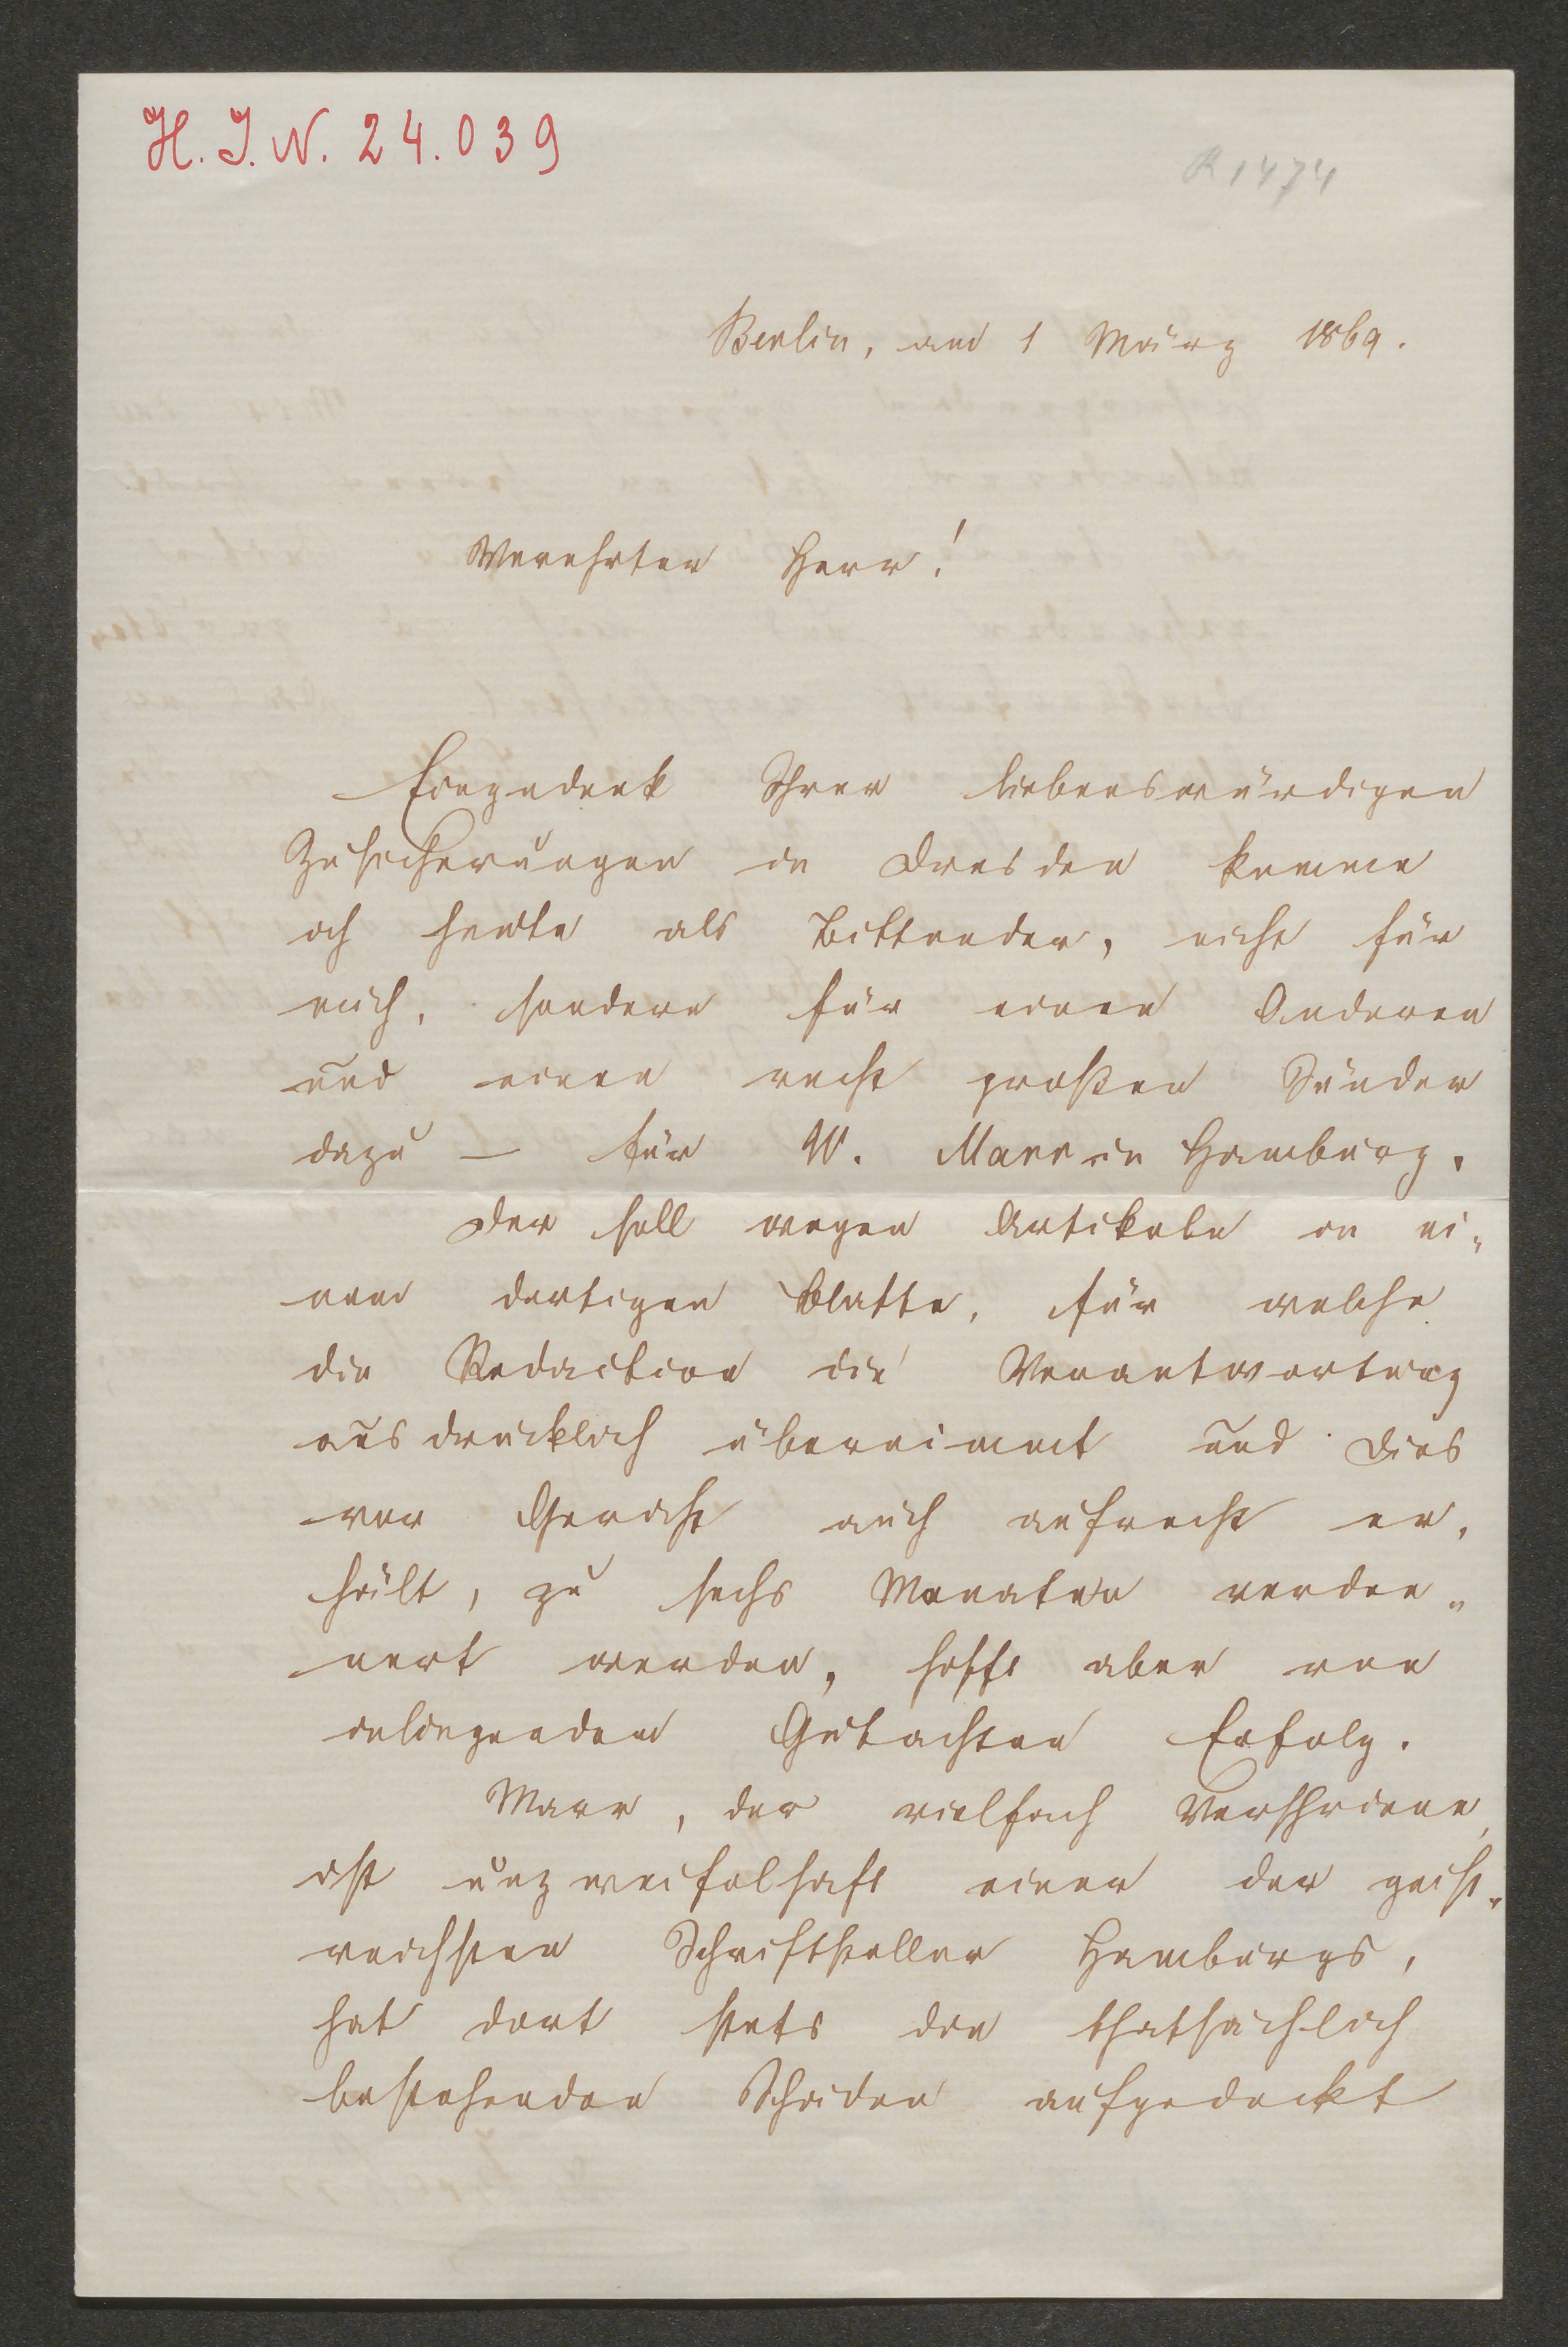 H. I. N. 24.039
R 1474
Berlin, am 1 März 1869.
Verehrter Herr!
Eingedenk Ihrer liebenswürdigen
Zusicherungen in Dresden komme
ich heute als Bittender, nicht für
mich, sondern für einen Anderen
und einen recht großen Sünder
dazu – für W. Marr in Hamburg.
Der soll wegen Artikeln in ei-
nem dortigen Blatte, für welche
die Redaction die Verantwortung
ausdrücklich übernimmt und dies
vor Gericht auch aufrecht er-
hält, zu sechs Monaten verdon-
nert werden, hofft aber von
inliegendem Gutachten Erfolg.
Marr, der vielfach Verschriene,
ist unzweifelhaft einer der geist-
reichsten Schriftsteller Hamburgs,
hat dort stets die thatsächlich
bestehenden Schäden aufgedeckt